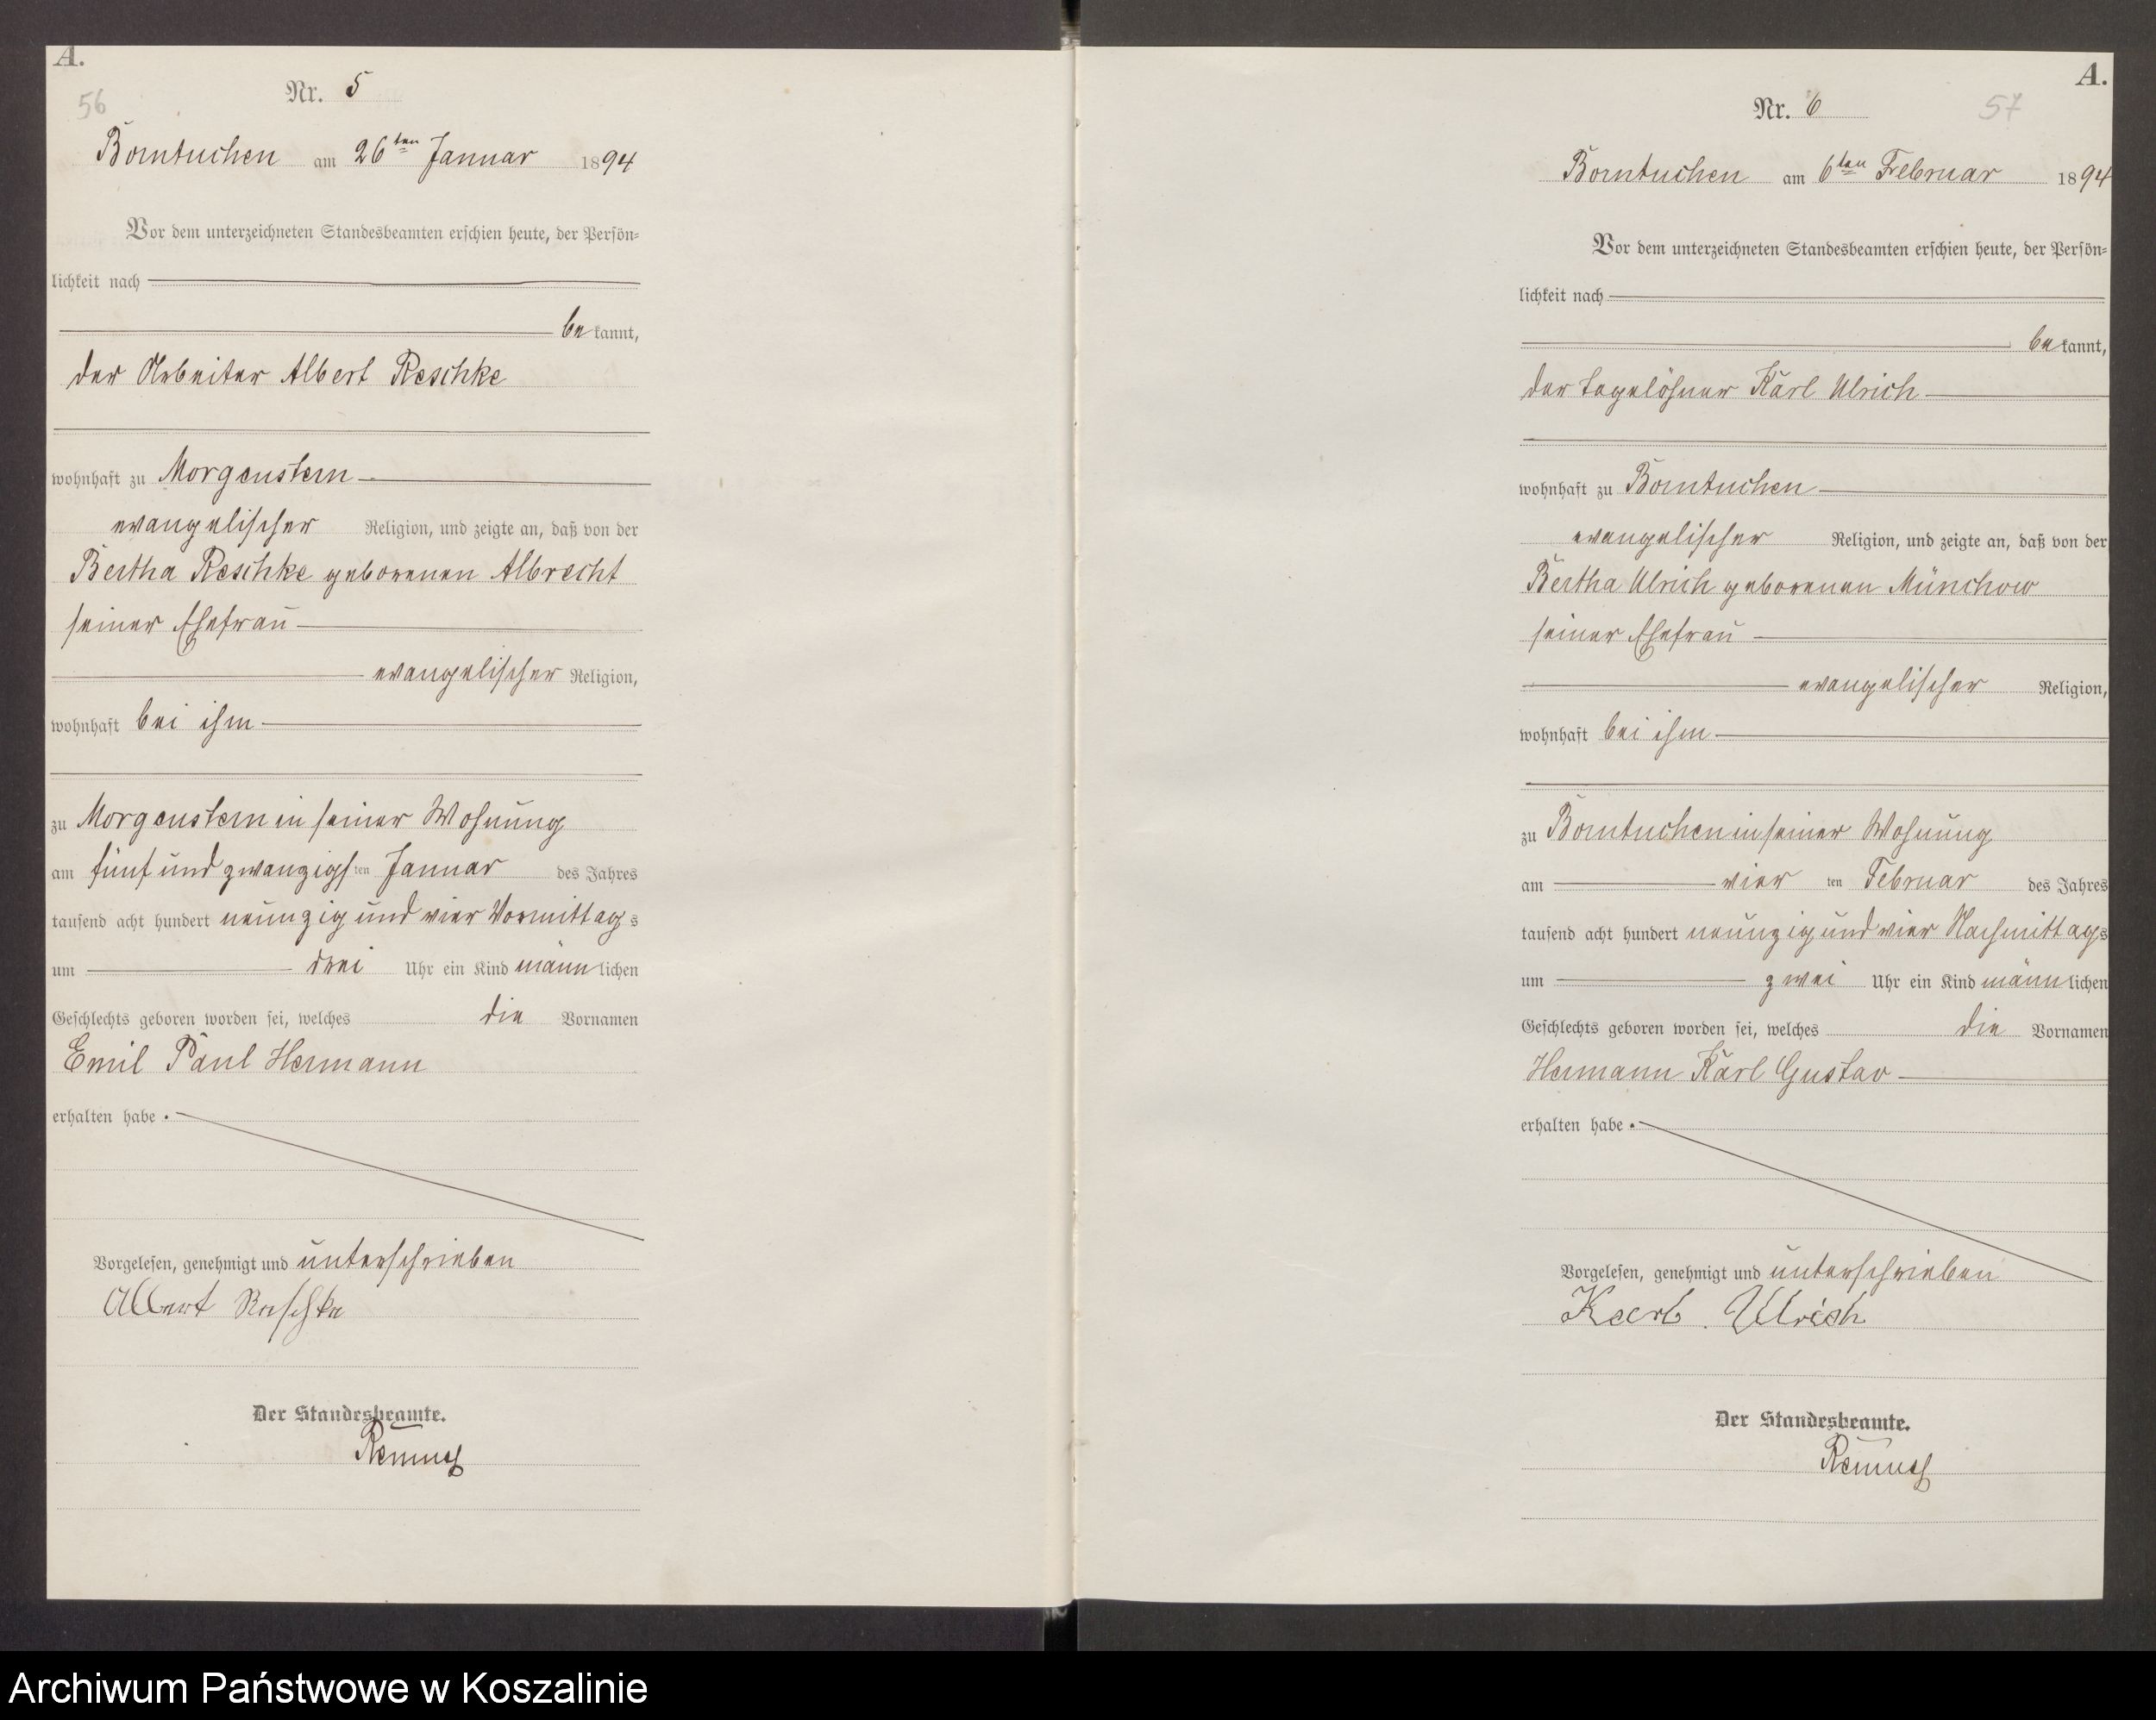 A.
56
Nr. 5
Borntuchen am 26ten Januar 1894
Vor dem unterzeichneten Standesbeamten erschien heute, der Persön-
lichkeit nach
bekannt,
der Arbeiter Albert Reschke
wohnhaft zu Morgenstern
evangelischer Religion, und zeigte an, daß von der
Bertha Reschke geborenen Albrecht
seiner Ehefrau
evangelischer Religion,
wohnhaft bei ihm
zu Morgenstern in seiner Wohnung
am fünf und zwanzigsten Januar des Jahres
tausend acht hundert neunzig und vier Vormittags
um drei Uhr ein Kind männlichen
Geschlechts geboren worden sei, welches die Vornamen
Emil Paul Hermann
erhalten habe.
Vorgelesen, genehmigt und unterschrieben
Albert Reschke
Der Standesbeamte.
Remus
A.
57
Nr. 6
Borntuchen am 6ten Februar 1894
Vor dem unterzeichneten Standesbeamten erschien heute, der Persön-
lichkeit nach
bekannt,
der Tagelöhner Karl Ulrich
wohnhaft zu Borntuchen
evangelischer Religion, und zeigte an, daß von der
Bertha Ulrich geborenen Münchow
seiner Ehefrau
evangelischer Religion,
wohnhaft bei ihm
zu Borntuchen in seiner Wohnung
am vierten Februar des Jahres
tausend acht hundert neunzig und vier Nachmittags
um zwei Uhr ein Kind männlichen
Geschlechts geboren worden sei, welches die Vornamen
Hermann Karl Gustav
erhalten habe.
Vorgelesen, genehmigt und unterschrieben
Karl Ulrich
Der Standesbeamte.
Remus
Archiwum Państwowe w Koszalinie